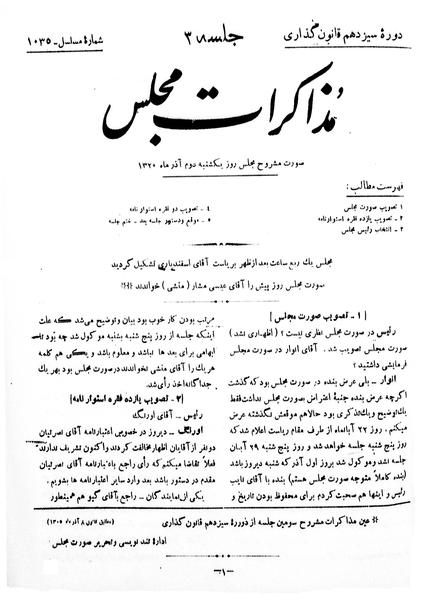 دورهٔ سیزدهم قانون گذاری
جلسه ۳
شمارهٔ مسلسل ـ ۱۰۳۵
مذاکرات مجلس
صورت مشروح مجلس روز یکشنبه دوم آذر ماه ۱۳۲۰
فهرست مطالب:
۱ تصویب صورت مجلس
۲ ـ تصویب یازده فقره استوارنامه
۳ ـ انتخاب رئیس مجلس
۴ ـ تصویب دو فقره استوارنامه
۵ ـ موقع و دستور جلسه بعد ـ ختم جلسه
مجلس یك ربع ساعت بعد از ظهر بریاست آقای اسفندیاری تشکیل گردید
صورت مجلس روز پیش را آقای عیسی مشار (منشی) خواندند
[۱ ـ تصویب صورت مجلس]
رئیس در صورت مجلس نظری نیست؟ (اظهاری نشد)
صورت مجلس تصویب شد. آقای انوار در صورت مجلس
فرمایشی داشتید؟
انوار ـ بلی عرض بنده در صورت مجلس بود که گذشت
اگر چه عرض بنده جنبهٔ اعتراض بصورت مجلس نداشت فقط
یك توضیح و یك تذکری بود حالا هم موقعش نگذشته عرض
میکنم. روز ۲۲ آبانماه از طرف مقام ریاست اعلام شد که
روز پنج شنبه جلسه خواهد شد و روز پنج شنبه ۲۹ آبان
جلسه نشد و موکول شد بروز اول آذر که شنبه دیروز باشد
(بنده کاملاً متوجه صورت مجلس هستم) بنده با آقای نایب
رئیس و اینها هم صحبت کردم برای محفوظ بودن تاریخ و
مرتب بودن کار خوب بود بیان و توضیح می‌شد که علت
اینکه جلسه از روز پنج شنبه بشنبه موکول شد چه بود تا
ابهامی برای بعد ها نباشد و معلوم باشد و یکی هم کلمه
هر یك را آقای منشی نخواندند در صورت مجلس بود بهر یك
جداگانه اخذ رأی شد.
[۲ ـ تصویب یازده فقره استوار نامه]
رئیس ـ آقای اورنگ
اورنگ ـ دیروز در خصوص اعتبارنامه آقای اصرتیان
دو نفر از آقایان اظهار مخالفت کردند و اکنون تشریف ندارند
فعلاً تقاضا میکنم که رأی راجع باعتبارنامه آقای اصرتیان
مقدم در دستور باشد بعد وارد سایر اعتبارنامه ها بشویم.
یکی از نمایندگان ـ راجع بآقای گیو هم همینطور
عین مذاکرات مشروح سومین جلسه از دورهٔ سیزدهم قانون گذاری
(مطابق قانون ۸ آذر ماه ۱۳۰۵)
ادارهٔ تند نویسی و تحریر صورت مجلس
ـ۱ـ